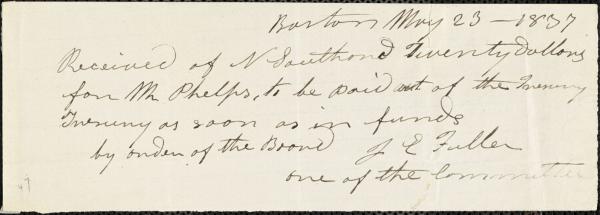 Boston May 23 - 1837
Received of N Southard Twenty Dollars
for Mr Phelps, to be paid out of the Tresuery
Tresuery as soon as in funds
by order of the Board J E Fuller
one of the Committee
47